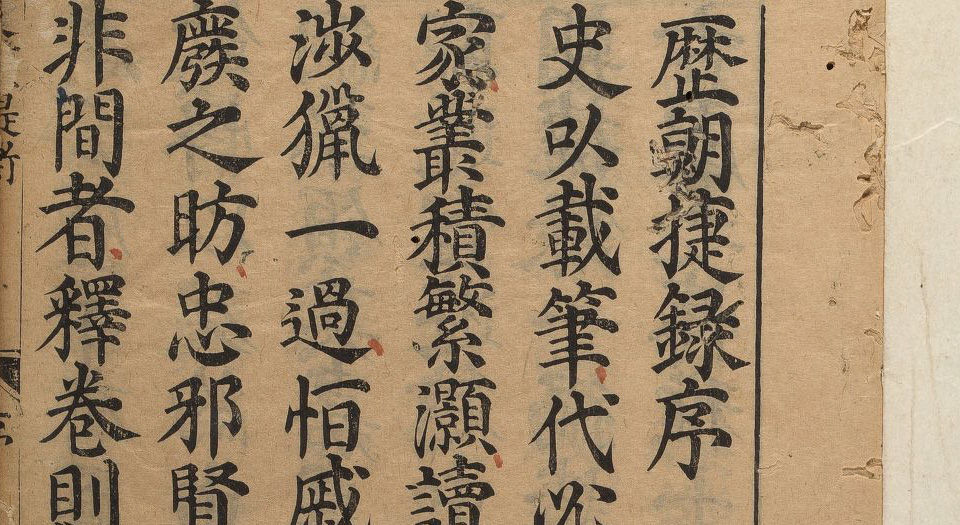 歷朝捷録序
史以載筆代必
家叢積繁灝讀
涉獵一過恒戚
廢之昉忠邪賢
非間者釋卷則